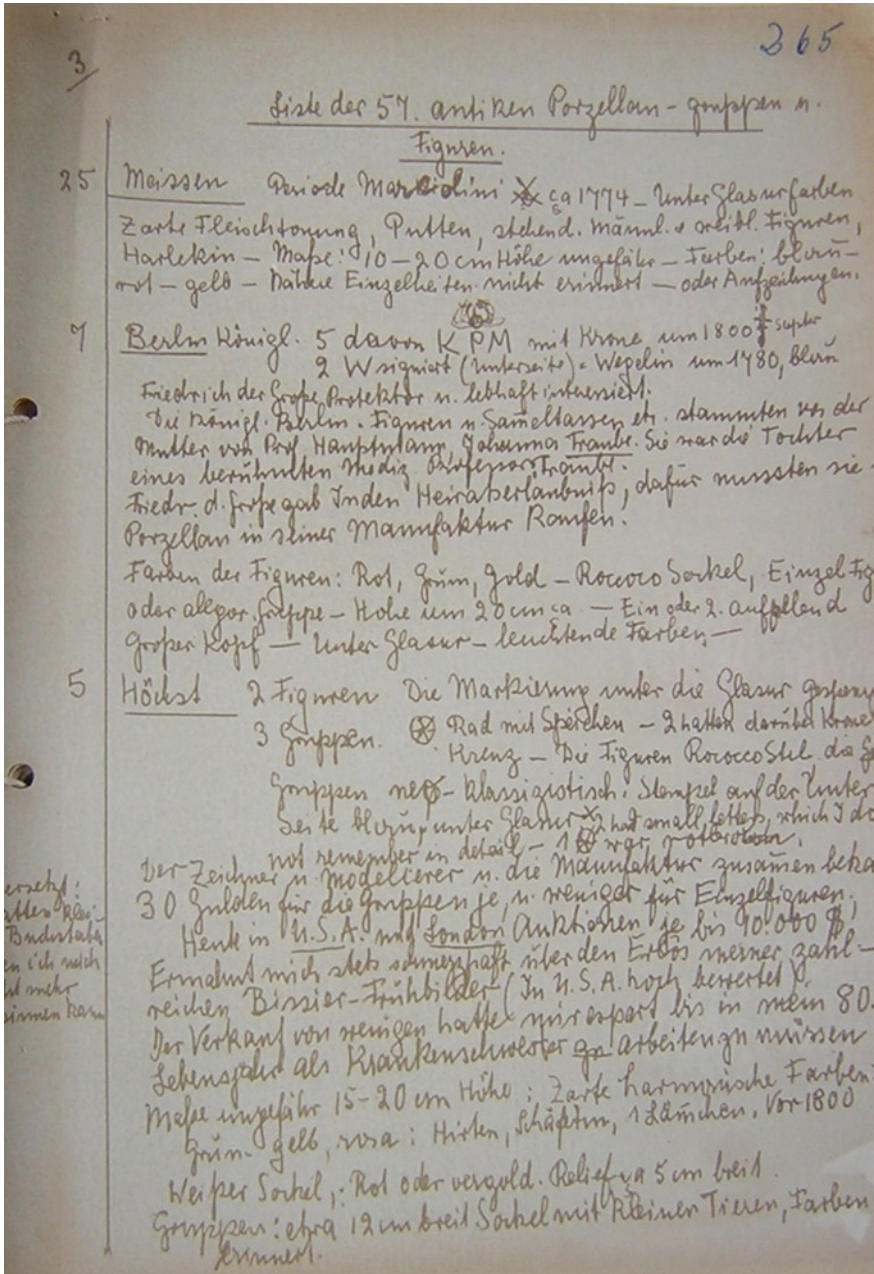 265
3
Liste der 57. antiken Porzellan-gruppen u.
Figuren.
25 Meissen Periode Marcolini ca 1774 – Unter Glasurfarben
Zarte Fleischtonung, Putten, stehend. männl. u weibl. Figuren,
Harlekin – Maße: 10–20 cm Höhe ungefähr – Farben: blau–
rot – gelb – Nähere Einzelheiten nicht erinnert – oder Aufzeichnungen.
7 Berlin Königl. 5 davon K PM mit Krone um 1800
2 W signiert (Unterseite) = Wegelin um 1780, blau
Friedrich der Große Protektor u. lebhaft interessiert.
Die Königl. Berlin. Figuren u. Sam̄eltassen etc. stammten von der
Mutter von Prof. Hauptmann, Johanna Traube. Sie war die Tochter
eines berühmten Mediz. Professors Traube.
Friedr. d. Große gab Juden Heiratserlaubniß, dafür mussten sie
Porzellan in seiner Manufaktur Kaufen.
Farben der Figuren: Rot, Grün, Gold – Rococo Sockel, Einzel Fig
oder allegor. Gruppe – Höhe um 20 cm ca – Ein oder 2. auffallend
Großer Kopf – Unter Glasur – leuchtende Farben –
5 Höchst 2 Figuren Die Markierung unter die Glasur
3 Gruppen. Rad mit Speichen – 2 hatten darüber Krone
Kreuz – Die Figuren Rococco Stil, die
Gruppen neo-Klassizistisch. Stempel auf der Unter
Seite unter Glasur 2 had small letters, which I do
not remember in detail – 1 war rotbraun.
Der Zeichner u. Modellierer u. die Manufaktur zusam̄en beka
30 Gulden für die Gruppen je, u. weniger für Einzelfiguren.
Heute in U.S.A. und London Auktionen je bis 10.000 $,
Ermahnt mich stets schmerzhaft über den Erlös meiner zahl-
reichen Bissier-Frühbilder (In U.S.A. hoch bewertet).
Der Verkauf von wenigen hätte mir erspart bis in mein 80.
Lebensjahr als Krankenschwester arbeiten zu müssen
Maße ungefähr 15–20 cm Höhe; Zarte harmonische Farben:
Grün- gelb, rosa: Hirten, Schäferin, 1 Läm̄chen, Vor 1800
Weißer Sockel,: Rot oder vergold. Relief ca 5 cm breit.
Gruppen: etwa 12 cm breit Sockel mit kleinen Tieren, Farben
erinnert.
ersetzt:
atten klei-
Buchstabe
en ich mich
ht mehr
sinnen kann